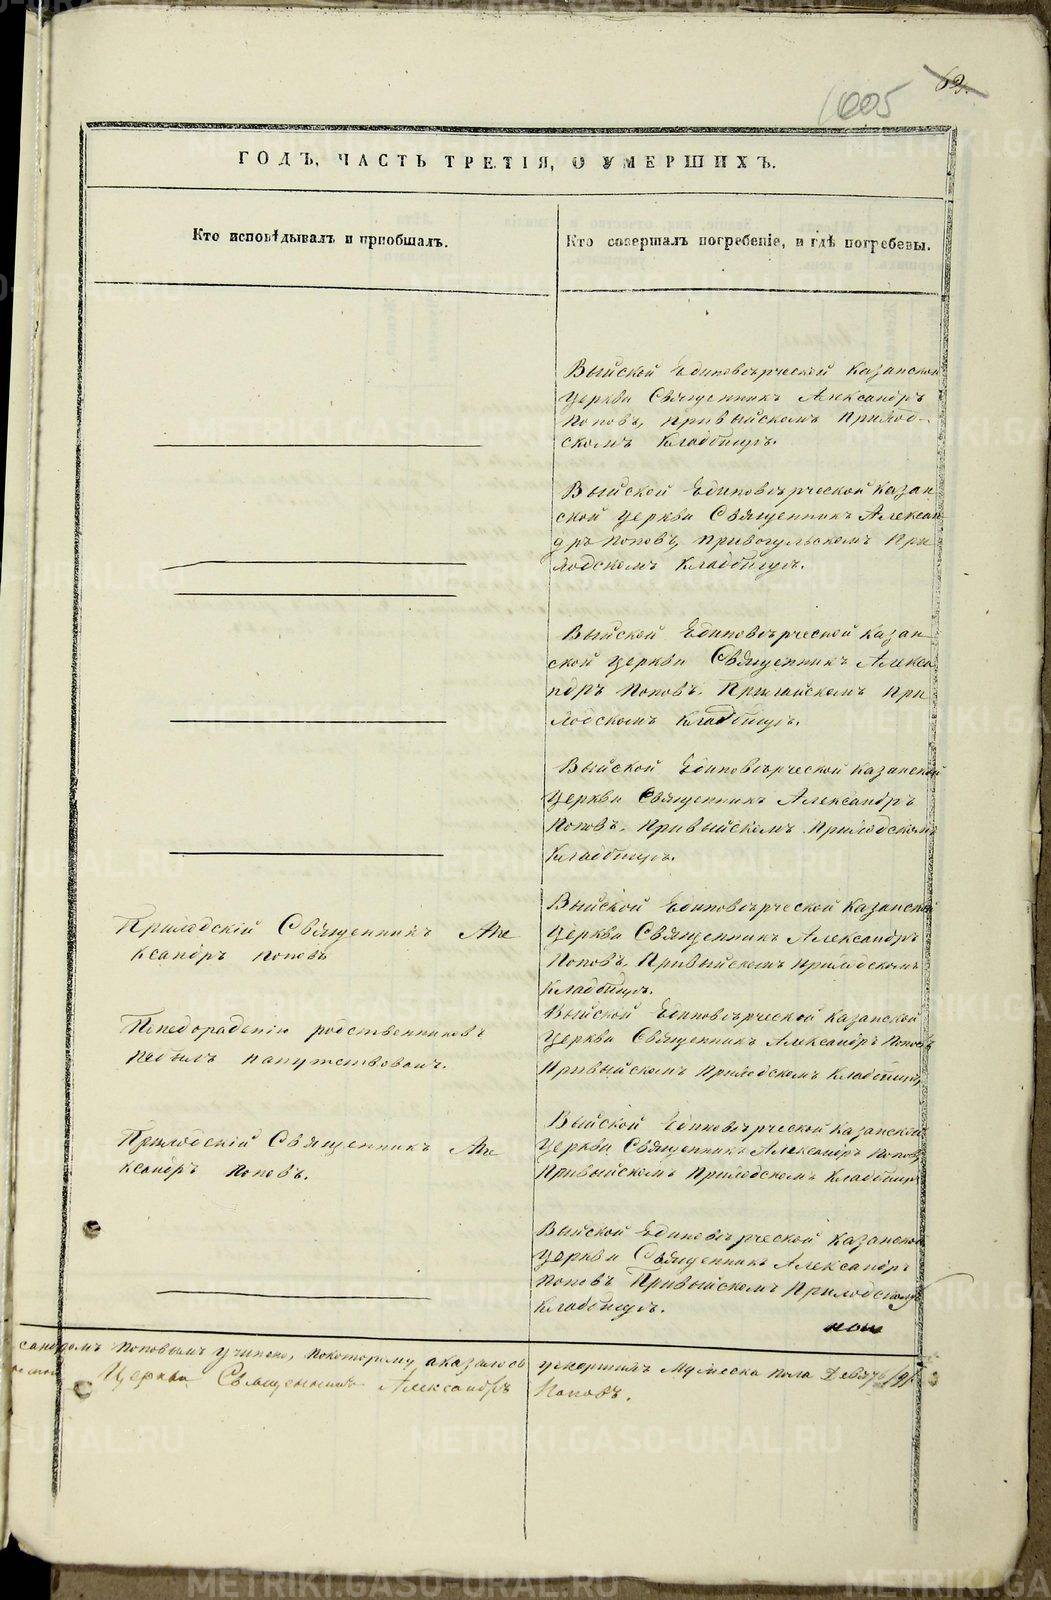 1005
62.
ГОДЪ, ЧАСТЬ ТРЕТІЯ, О УМЕРШИХЪ.
Кто исповѣдывалъ и пріобщалъ.
Кто совершалъ погребеніе, и гдѣ погребены.
Выйской Единовѣрческой Казанской
Церкви Священникъ Александръ
Поповъ, привыйскомъ Приход-
скомъ Кладбищѣ.
Выйской Единовѣрческой Казан
ской Церкви Священникъ Алексан
дръ Поповъ, При
ходскомъ Кладбищѣ.
Выйской Единовѣрческой Казан
ской Церкви Священникъ Алекса
ндръ Поповъ. При
ходскомъ Кладбищѣ.
Выйской Единовѣрческой Казанской
Церкви Священникъ Александръ
Поповъ. Привыйскомъ Приходскомъ
Кладбищѣ.
Приходскій Священникъ Але
ксандръ Поповъ
Выйской Единовѣрческой Казанской
Церкви Священникъ Александръ
Поповъ. Привыйскомъ Приходскомъ
Кладбищѣ.
Понедораденію родственниковъ
небылъ напутствованъ.
Выйской Единовѣрческой Казанской
Церкви Священникъ Александръ Поповъ
Привыйскомъ Приходскомъ Кладбищѣ
Приходскій Священникъ Але
ксандръ Поповъ.
Выйской Единовѣрческой Казанской
Церкви Священникъ Александръ Поповъ
Привыйскомъ Приходскомъ Кладбищѣ
Выйской Единовѣрческой Казанской
Церкви Священникъ Александръ
Поповъ Привыйскомъ Приходскомъ
Кладбищѣ.
Поповымъ учинено, покоторому оказалось умершихъ Мужеска пола Девять /9/
Церкви Священникъ Александръ Поповъ.
METRIKI.GASO-URAL.RU